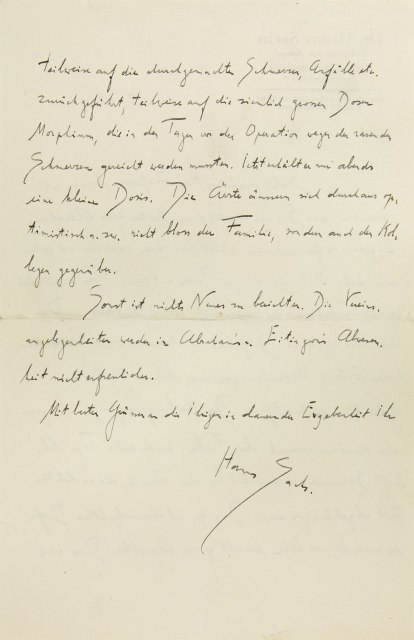 teilweise auf die durchgemachten Schmerzen, Anfälle etc.
zurückgeführt, teilweise auf die ziemlich grossen Dosen
Morphium, die in den Tagen vor der Operation wegen der rasenden
Schmerzen gereicht werden mussten. Jetzt erhält er nur abends
eine kleine Dosis. Die Ärzte äussern sich durchaus op-
timistisch u. zw. nicht bloss der Familie, sondern auch den Kol-
legen gegenüber.
Sonst ist nichts Neues zu berichten. Die Vereins-
angelegenheiten werden in Eitingons Abwesen-
heit nicht erfreulicher.
Mit besten Grüssen an die Ihrigen in dauernder Ergebenheit Ihr
Hanns Sachs.